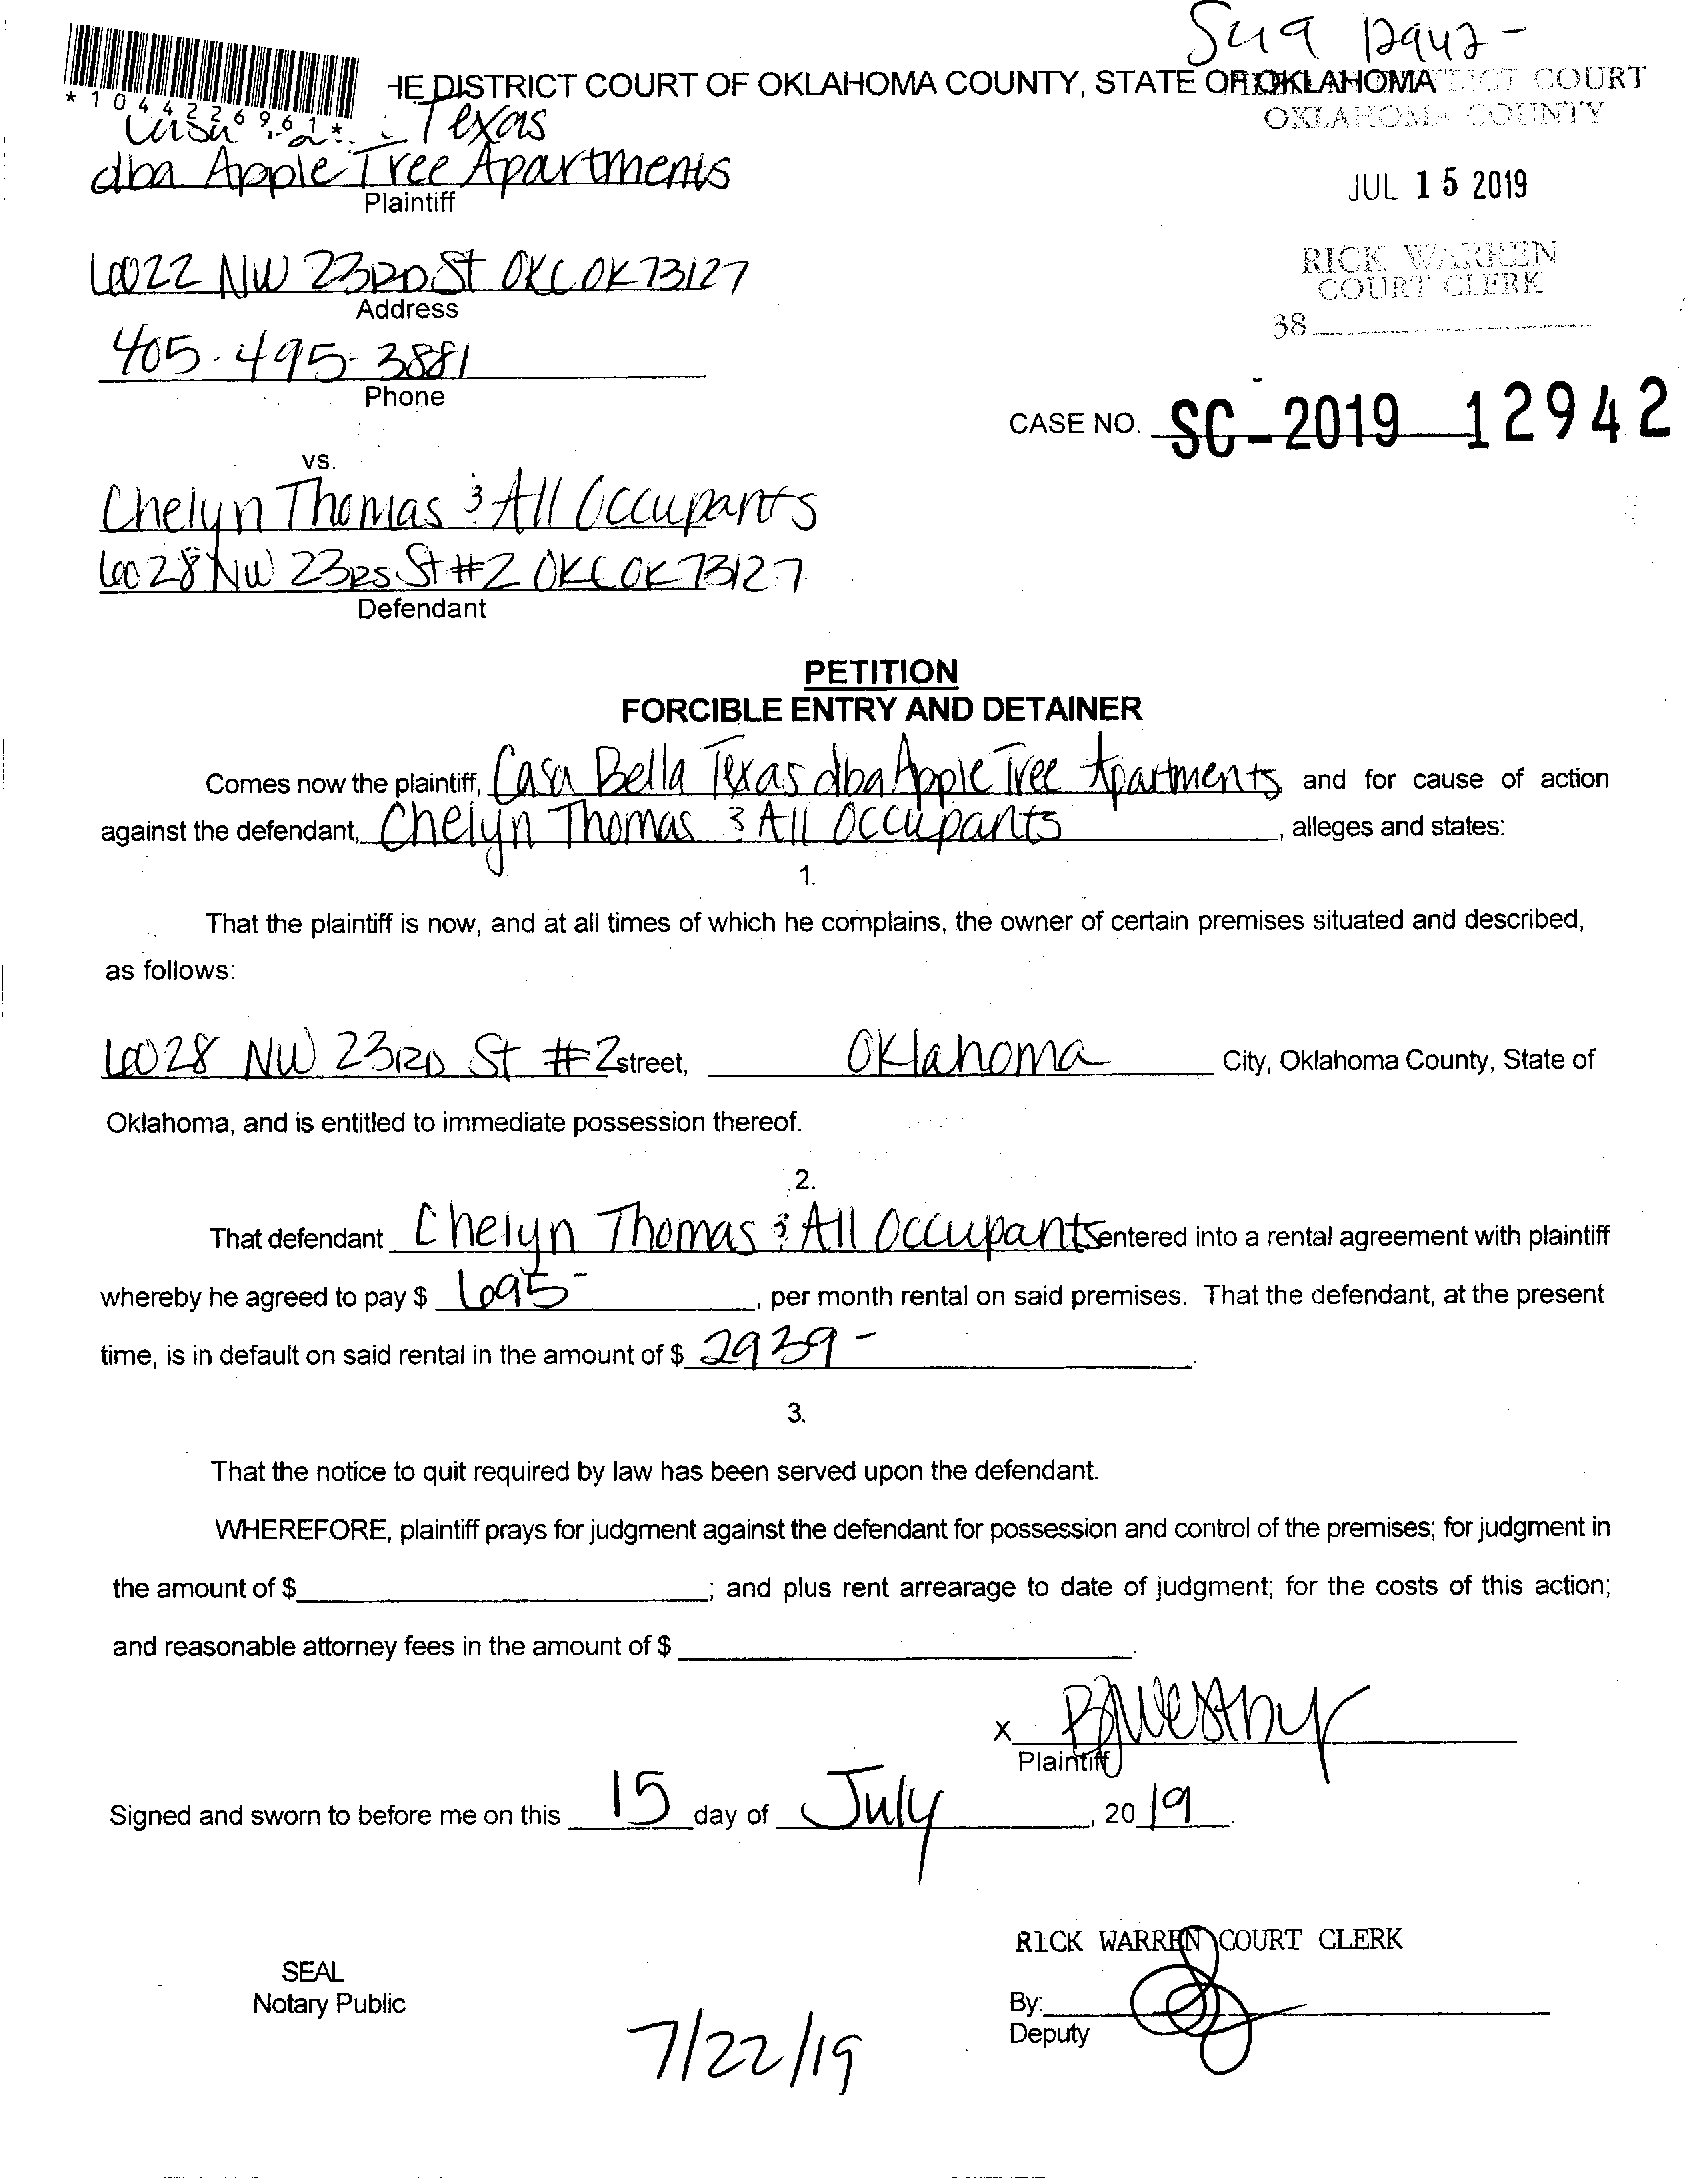 HE DISTRICT COURT OF OKLAHOMA COUNTY, STATE OF OKLAHOMA
COURT
OKLAHOMA COUNTY
*1044226961*
Casa Texas
dba Apple Tree Apartments
Plaintiff
JUL 15 2019
6022 NW 23RD St OKC OK 73127
Address
RICK WARREN
COURT CLERK
38
405-495-3881
Phone
CASE NO. SC-2019 12942
vs.
Chelyn Thomas & All Occupants
6028 NW 23RD St #2 OKC OK 73127
Defendant
PETITION
FORCIBLE ENTRY AND DETAINER
Comes now the plaintiff, Casa Bella Texas dba Apple Tree Apartments and for cause of action
against the defendant, Chelyn Thomas & All Occupants, alleges and states:
1.
That the plaintiff is now, and at all times of which he complains, the owner of certain premises situated and described,
as follows:
6028 NW 23RD St #2 street, Oklahoma City, Oklahoma County, State of
Oklahoma, and is entitled to immediate possession thereof.
2.
That defendant Chelyn Thomas & All Occupants entered into a rental agreement with plaintiff
whereby he agreed to pay $ 695-, per month rental on said premises. That the defendant, at the present
time, is in default on said rental in the amount of $ 2939-.
3.
That the notice to quit required by law has been served upon the defendant.
WHEREFORE, plaintiff prays for judgment against the defendant for possession and control of the premises; for judgment in
the amount of $ ; and plus rent arrearage to date of judgment; for the costs of this action;
and reasonable attorney fees in the amount of $ .
x
Plaintiff
Signed and sworn to before me on this 15 day of July, 2019.
RICK WARREN COURT CLERK
SEAL
Notary Public
By:
Deputy
7/22/19